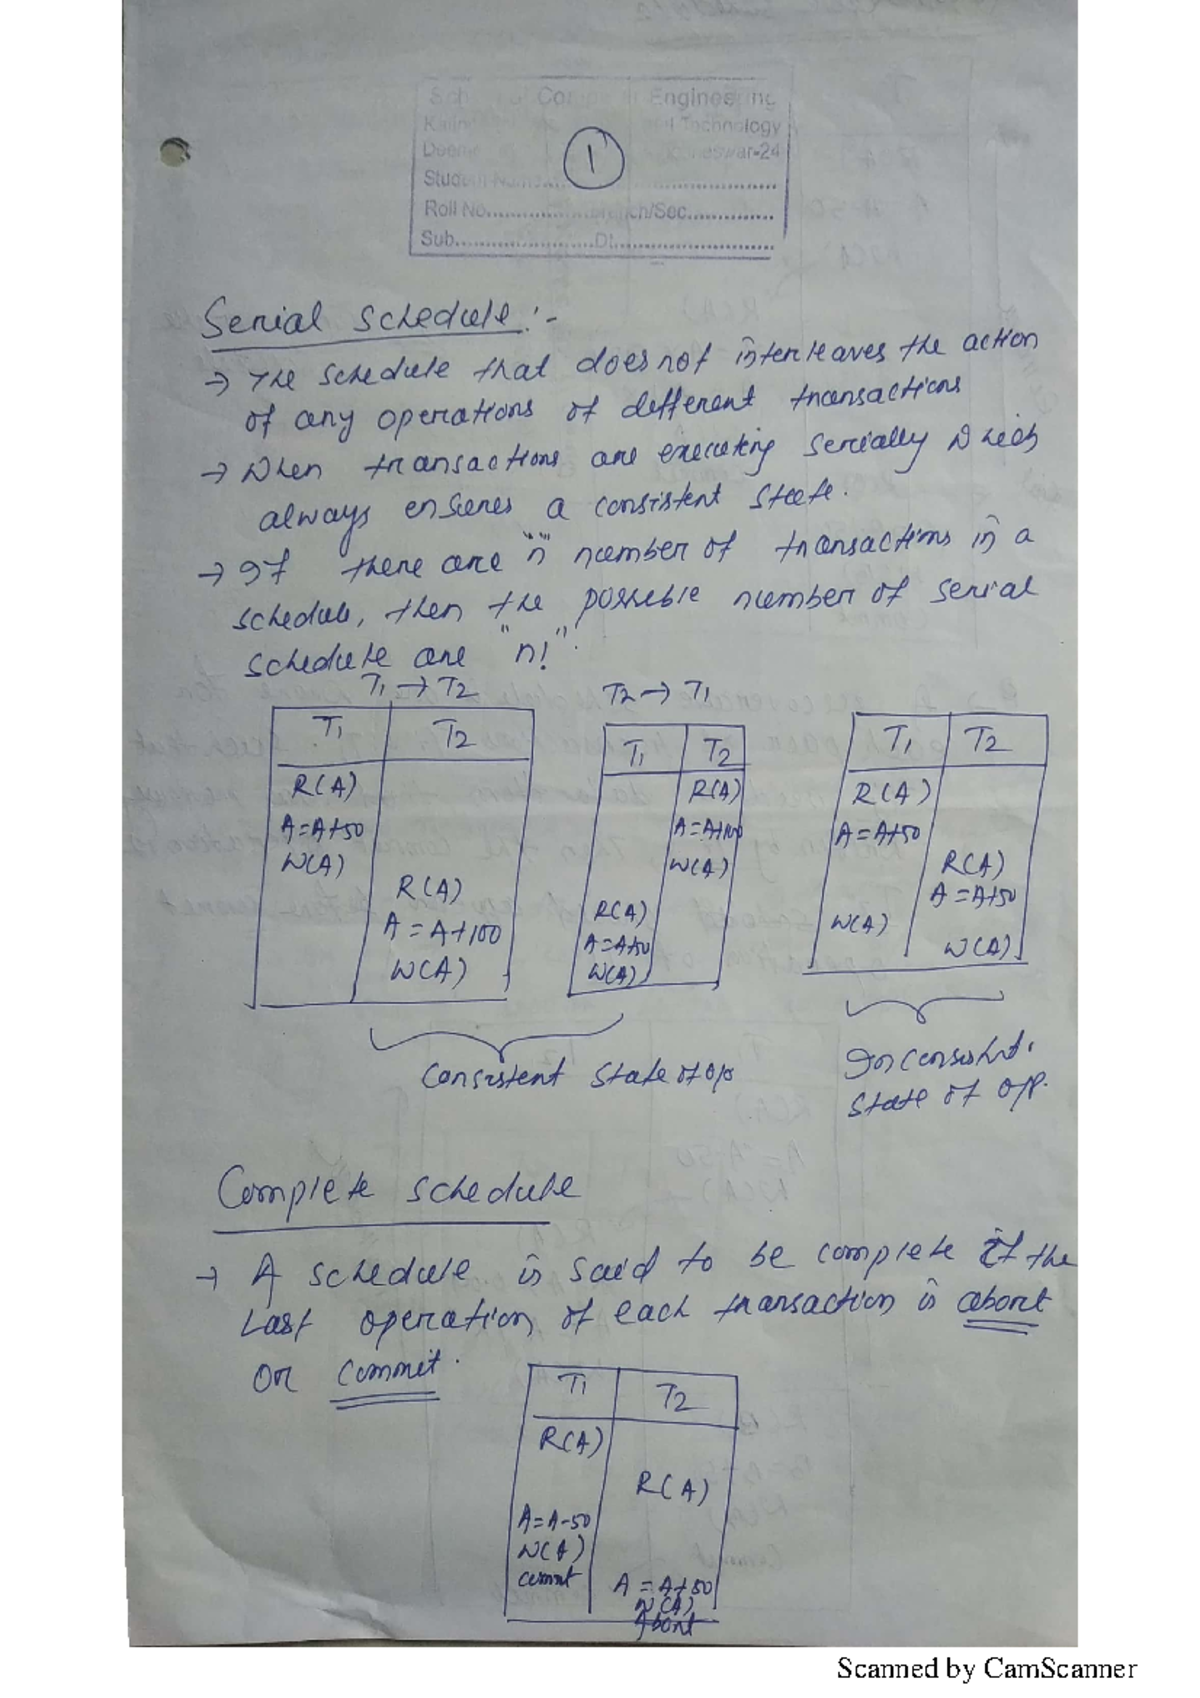 Engineering
Technology
1
Student Name
Roll No. ch/Sec.
Sub. Dt.
Serial Schedule :-
→ The schedule that does not interleaves the action
of any operations of different transactions
→ When transactions are executing serially which
always ensures a consistent state.
→ If there are "n" number of transactions in a
schedule, then the possible number of serial
schedule are "n!".
T1 → T2
T2 → T1
T1 T2
R(A)
A=A+50
W(A)
R(A)
A = A+100
W(A)
T1 T2
R(A)
A=A+100
W(A)
R(A)
A=A+50
W(A)
T1 T2
R(A)
A=A+50
R(A)
A=A+50
W(A)
W(A)
Consistent State of o/p
Inconsistent
State of o/p.
Complete schedule
→ A schedule is said to be complete if the
Last operation of each transaction is abort
or commit.
T1 T2
R(A)
R(A)
A=A-50
W(A)
commit
A = A+50
W(A)
Abort
Scanned by CamScanner